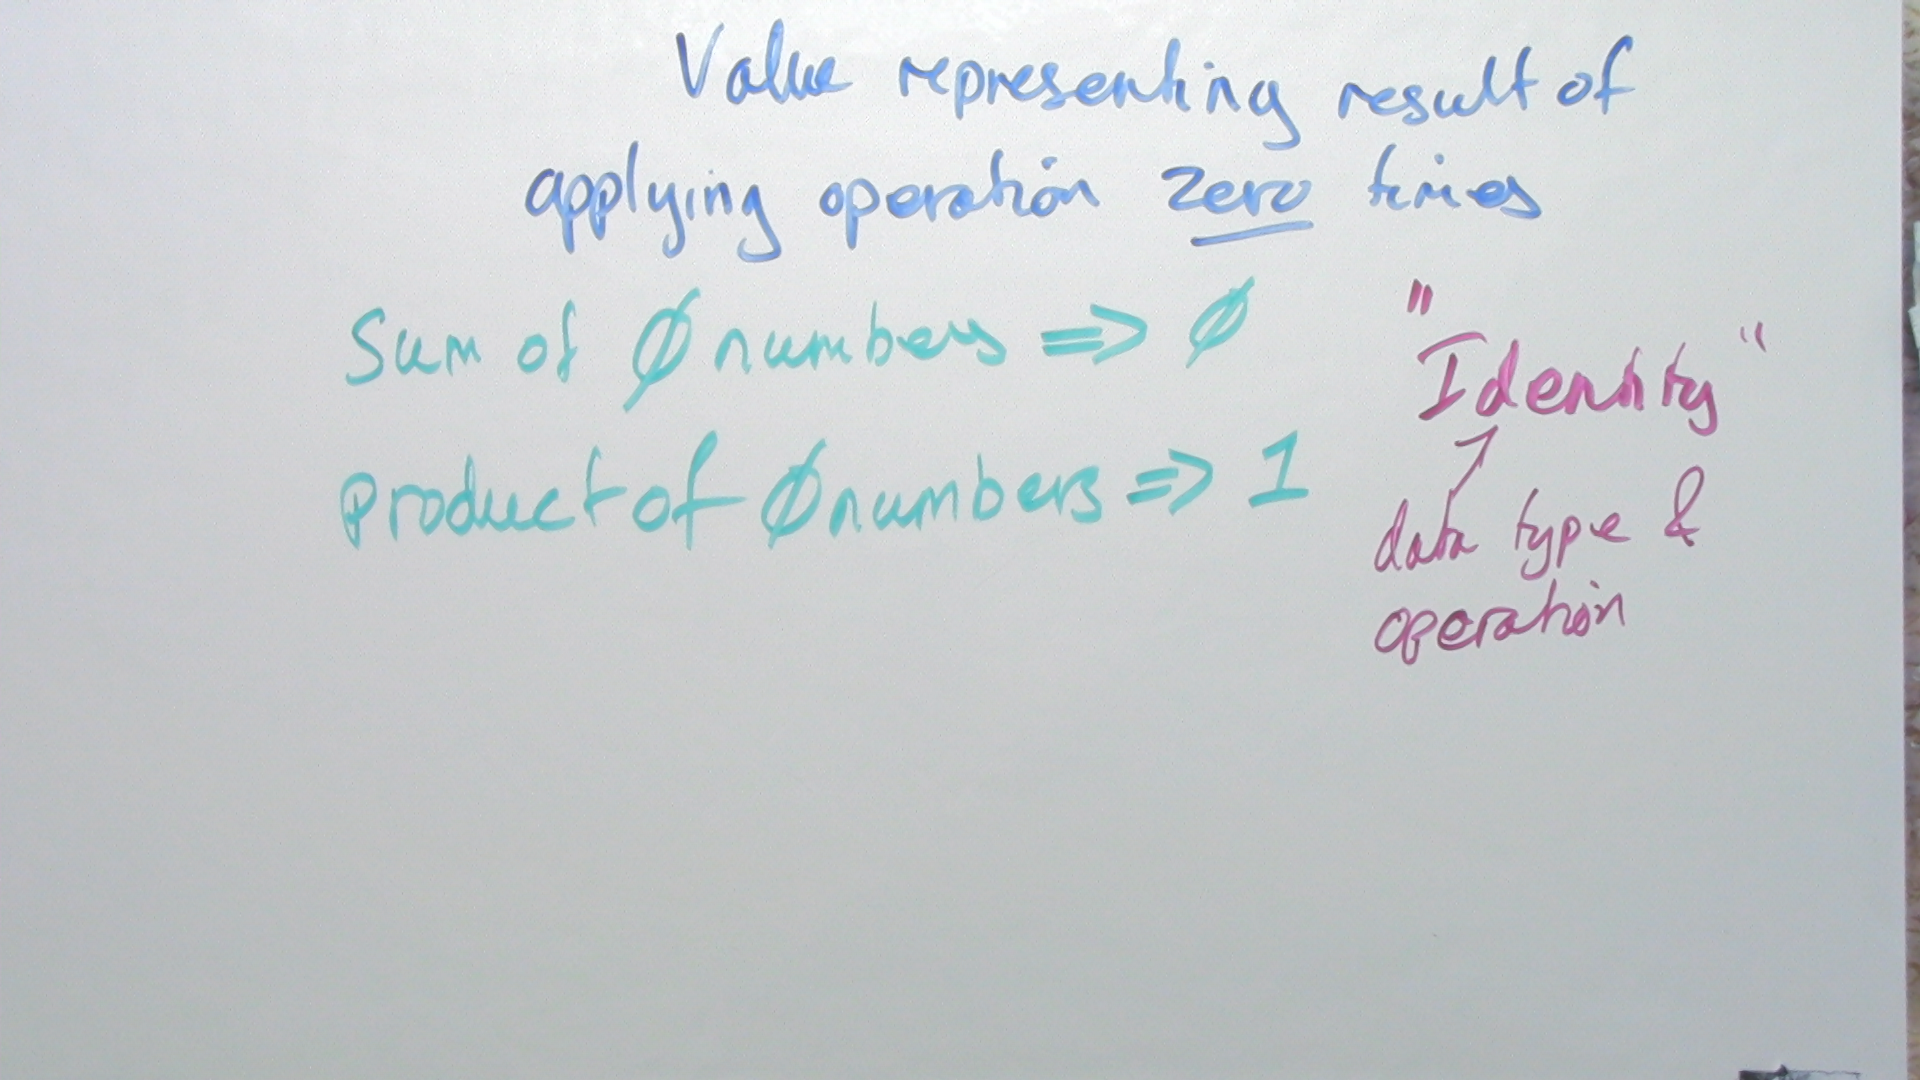 Value representing result of
applying operation zero times
Sum of Ø numbers => Ø
product of Ø numbers => 1
"Identity"
data type &
operation